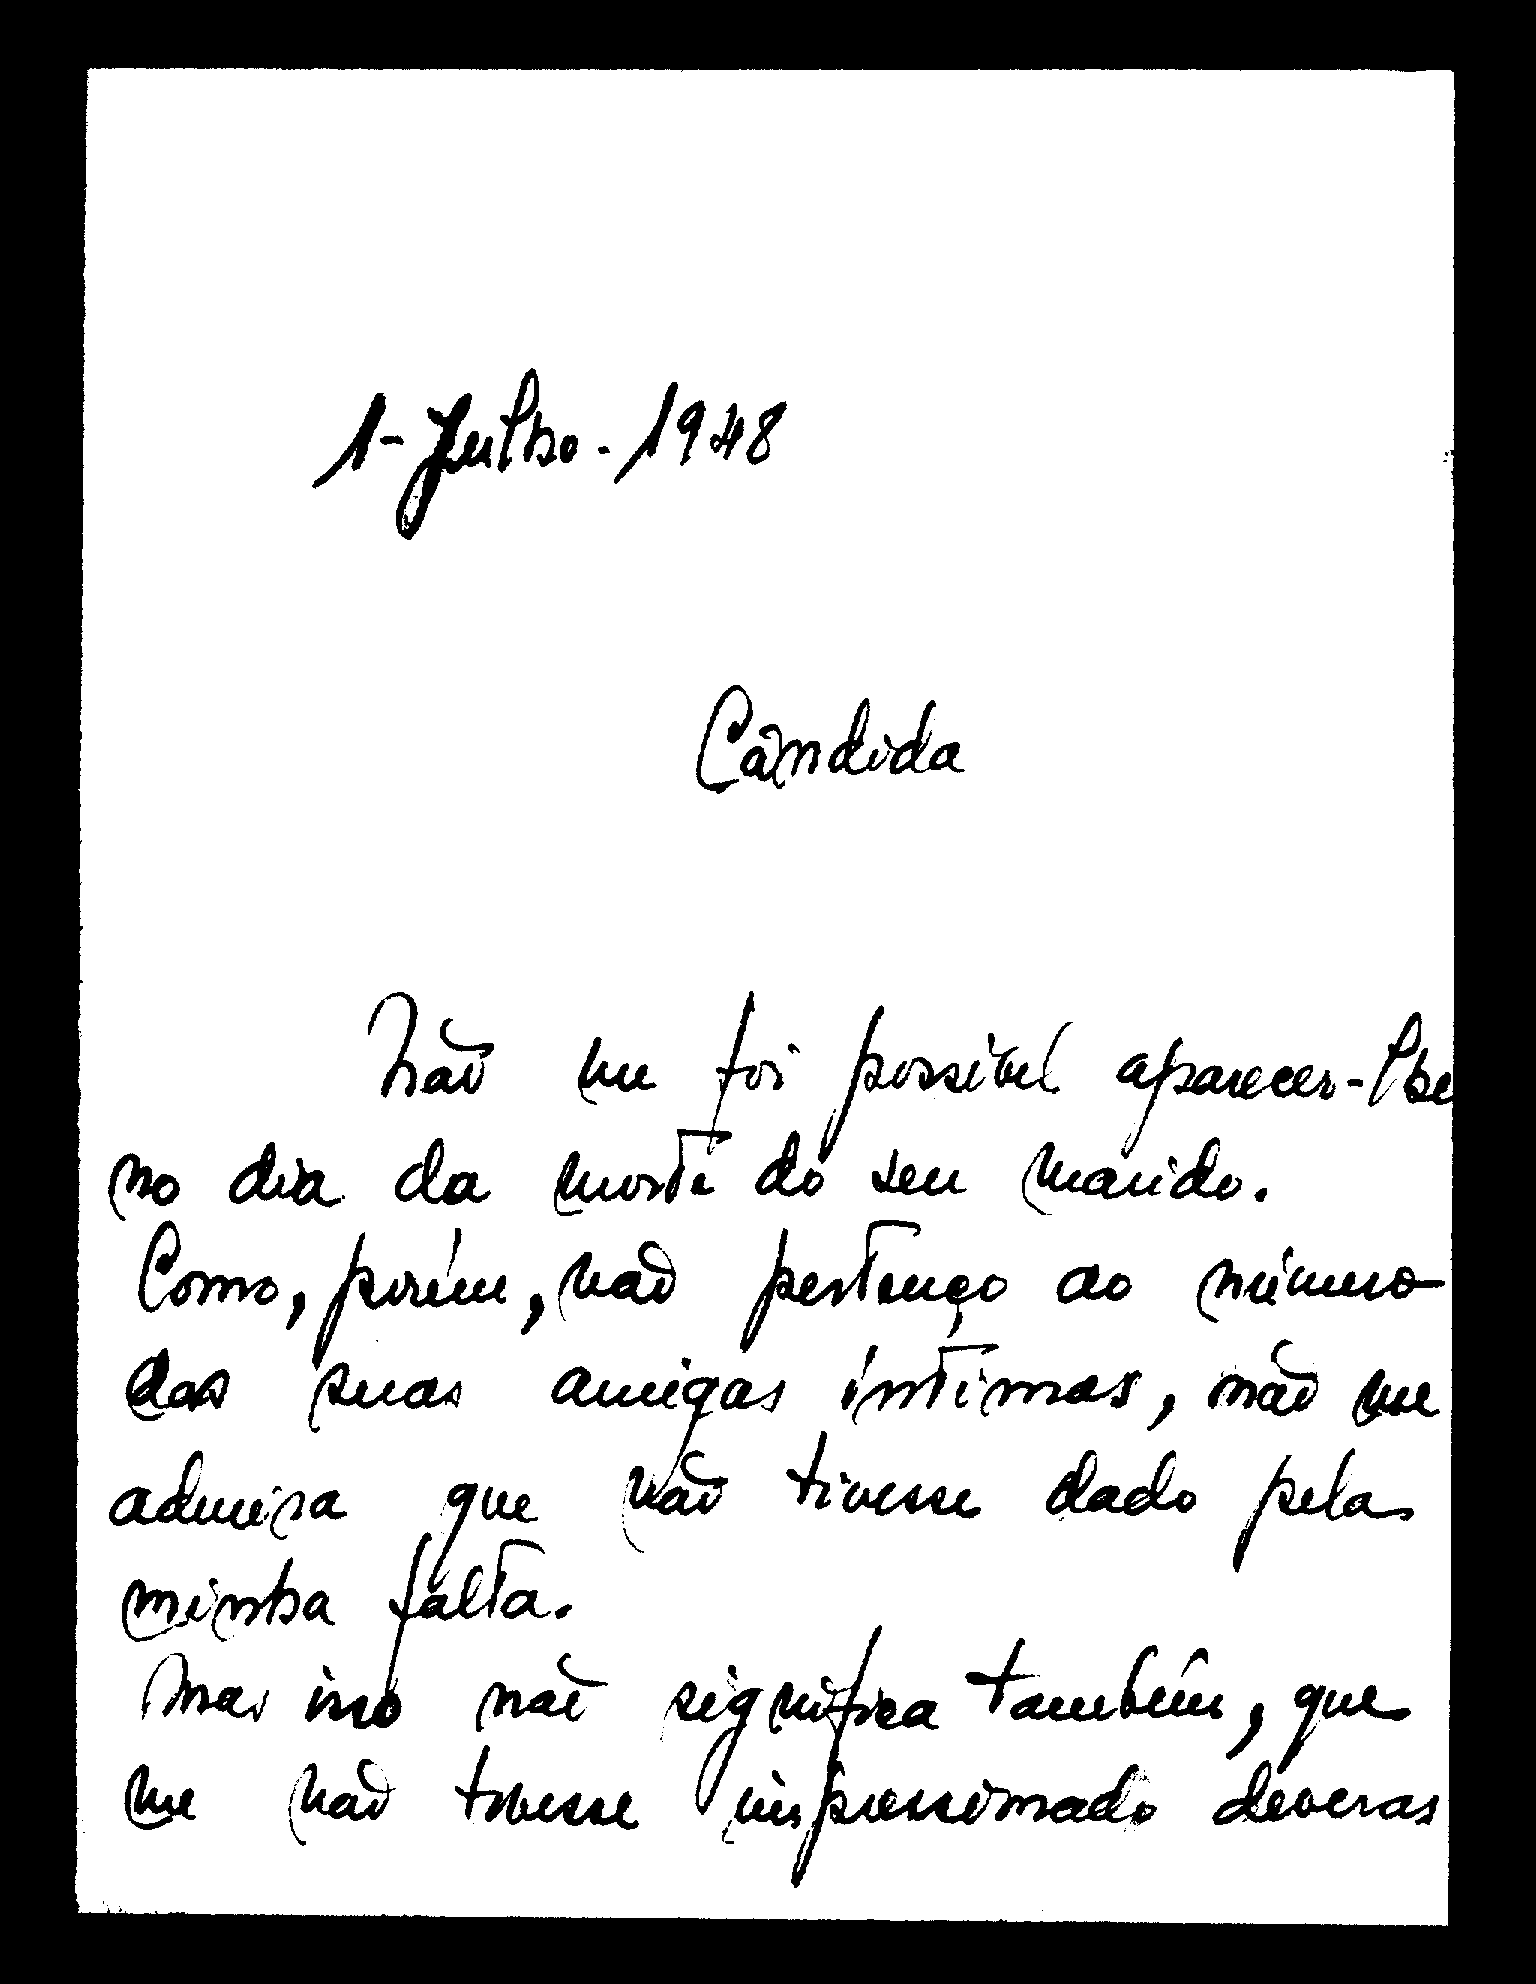 1-Julho-1948
Cândida
Não me foi possível aparecer-lhe
no dia da morte do seu marido.
Como, porém, não pertenço ao número
das suas amigas íntimas, não me
admira que não tivesse dado pela
minha falta.
Mas isso não significa também, que
me não tivesse impressionado deveras